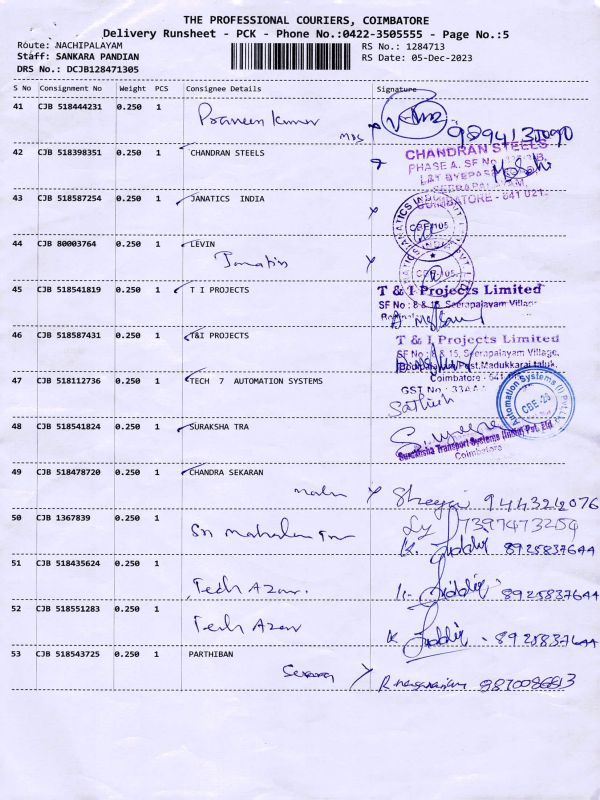 THE PROFESSIONAL COURIERS, COIMBATORE
Delivery Runsheet - PCK - Phone No.:0422-3505555 - Page No.:5
Route: NACHIPALAYAM RS No.: 1284713
Staff: SANKARA PANDIAN RS Date: 05-Dec-2023
DRS No.: DCJB128471305
S No Consignment No Weight PCS Consignee Details Signature
41 CJB 518444231 0.250 1
Praveen Kumar
42 CJB 518398351 0.250 1 CHANDRAN STEELS
CHANDRAN STEELS
PHASE A. SF No
L&T BYEPASS
COIMBATORE - 641 021.
43 CJB 518587254 0.250 1 JANATICS INDIA
JANATICS INDIA
CBE-105
44 CJB 80003764 0.250 1 LEVIN
Janatics
CBE-105
45 CJB 518541819 0.250 1 T I PROJECTS
T & I Projects Limited
SF No : 8 & 15, Seerapalayam Village
46 CJB 518587431 0.250 1 T&I PROJECTS
T & I Projects Limited
SF No : 8 & 15, Seerapalayam Village,
Post, Madukkarai taluk,
Coimbatore - 641
GST No : 33AA
47 CJB 518112736 0.250 1 TECH 7 AUTOMATION SYSTEMS
Sathish
Automation Systems (I) Pvt. Ltd
48 CJB 518541824 0.250 1 SURAKSHA TRA
Suraksha Transport Systems (India) Pvt. Ltd
Coimbatore
49 CJB 518478720 0.250 1 CHANDRA SEKARAN
50 CJB 1367839 0.250 1
Sri
8925837644
51 CJB 518435624 0.250 1
Tech Azar. 8925837644
52 CJB 518551283 0.250 1
Tech Azar 8925837644
53 CJB 518543725 0.250 1 PARTHIBAN